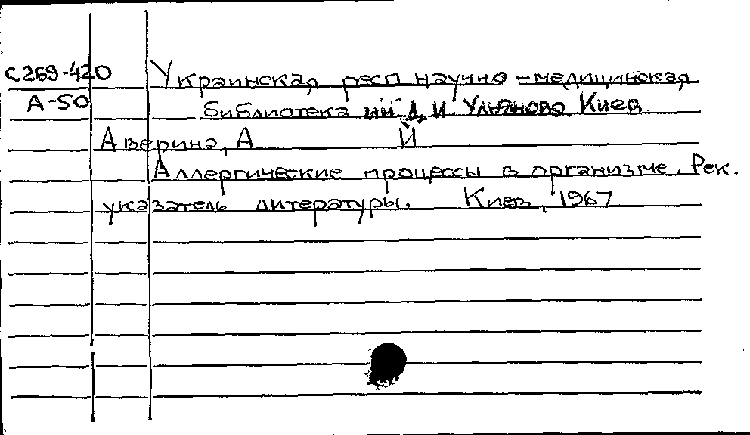 С269-420
А-50
Украинская респ научно-медицинская
библиотека им Д И Ульянова Киев
Аверина, А Й
Аллергические процессы в организме. Рек.
указатель литературы. Киев, 1967